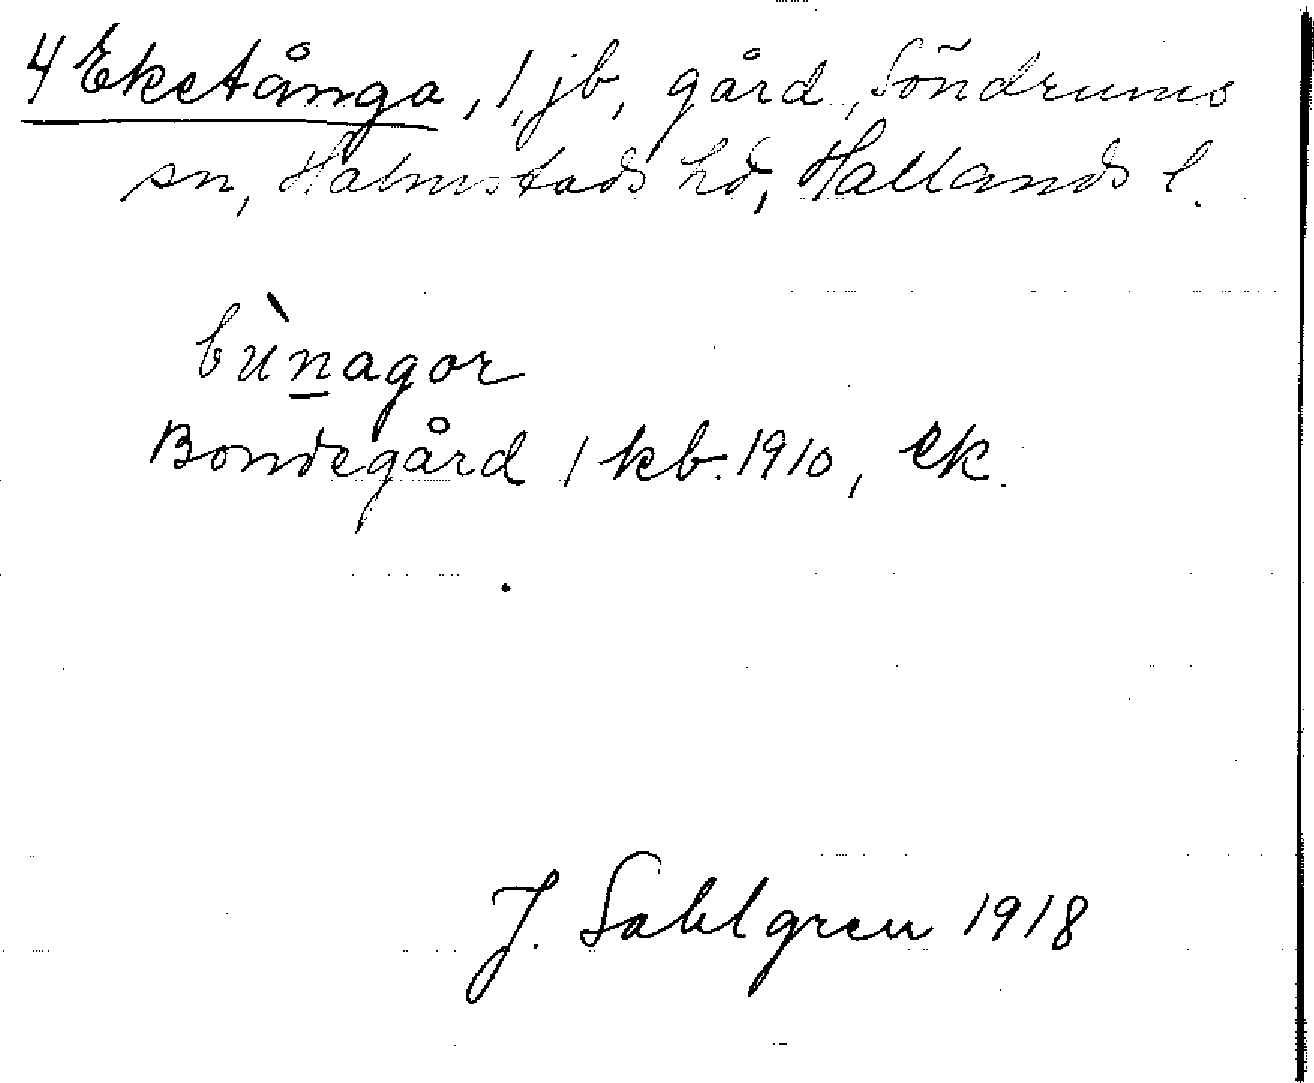 4 Eketånga, 1, jb, gård, Söndrums
sn, Halmstads hd, Hallands l.
bùnagor
Bondegård 1 kb. 1910, ek.
J. Sahlgren 1918